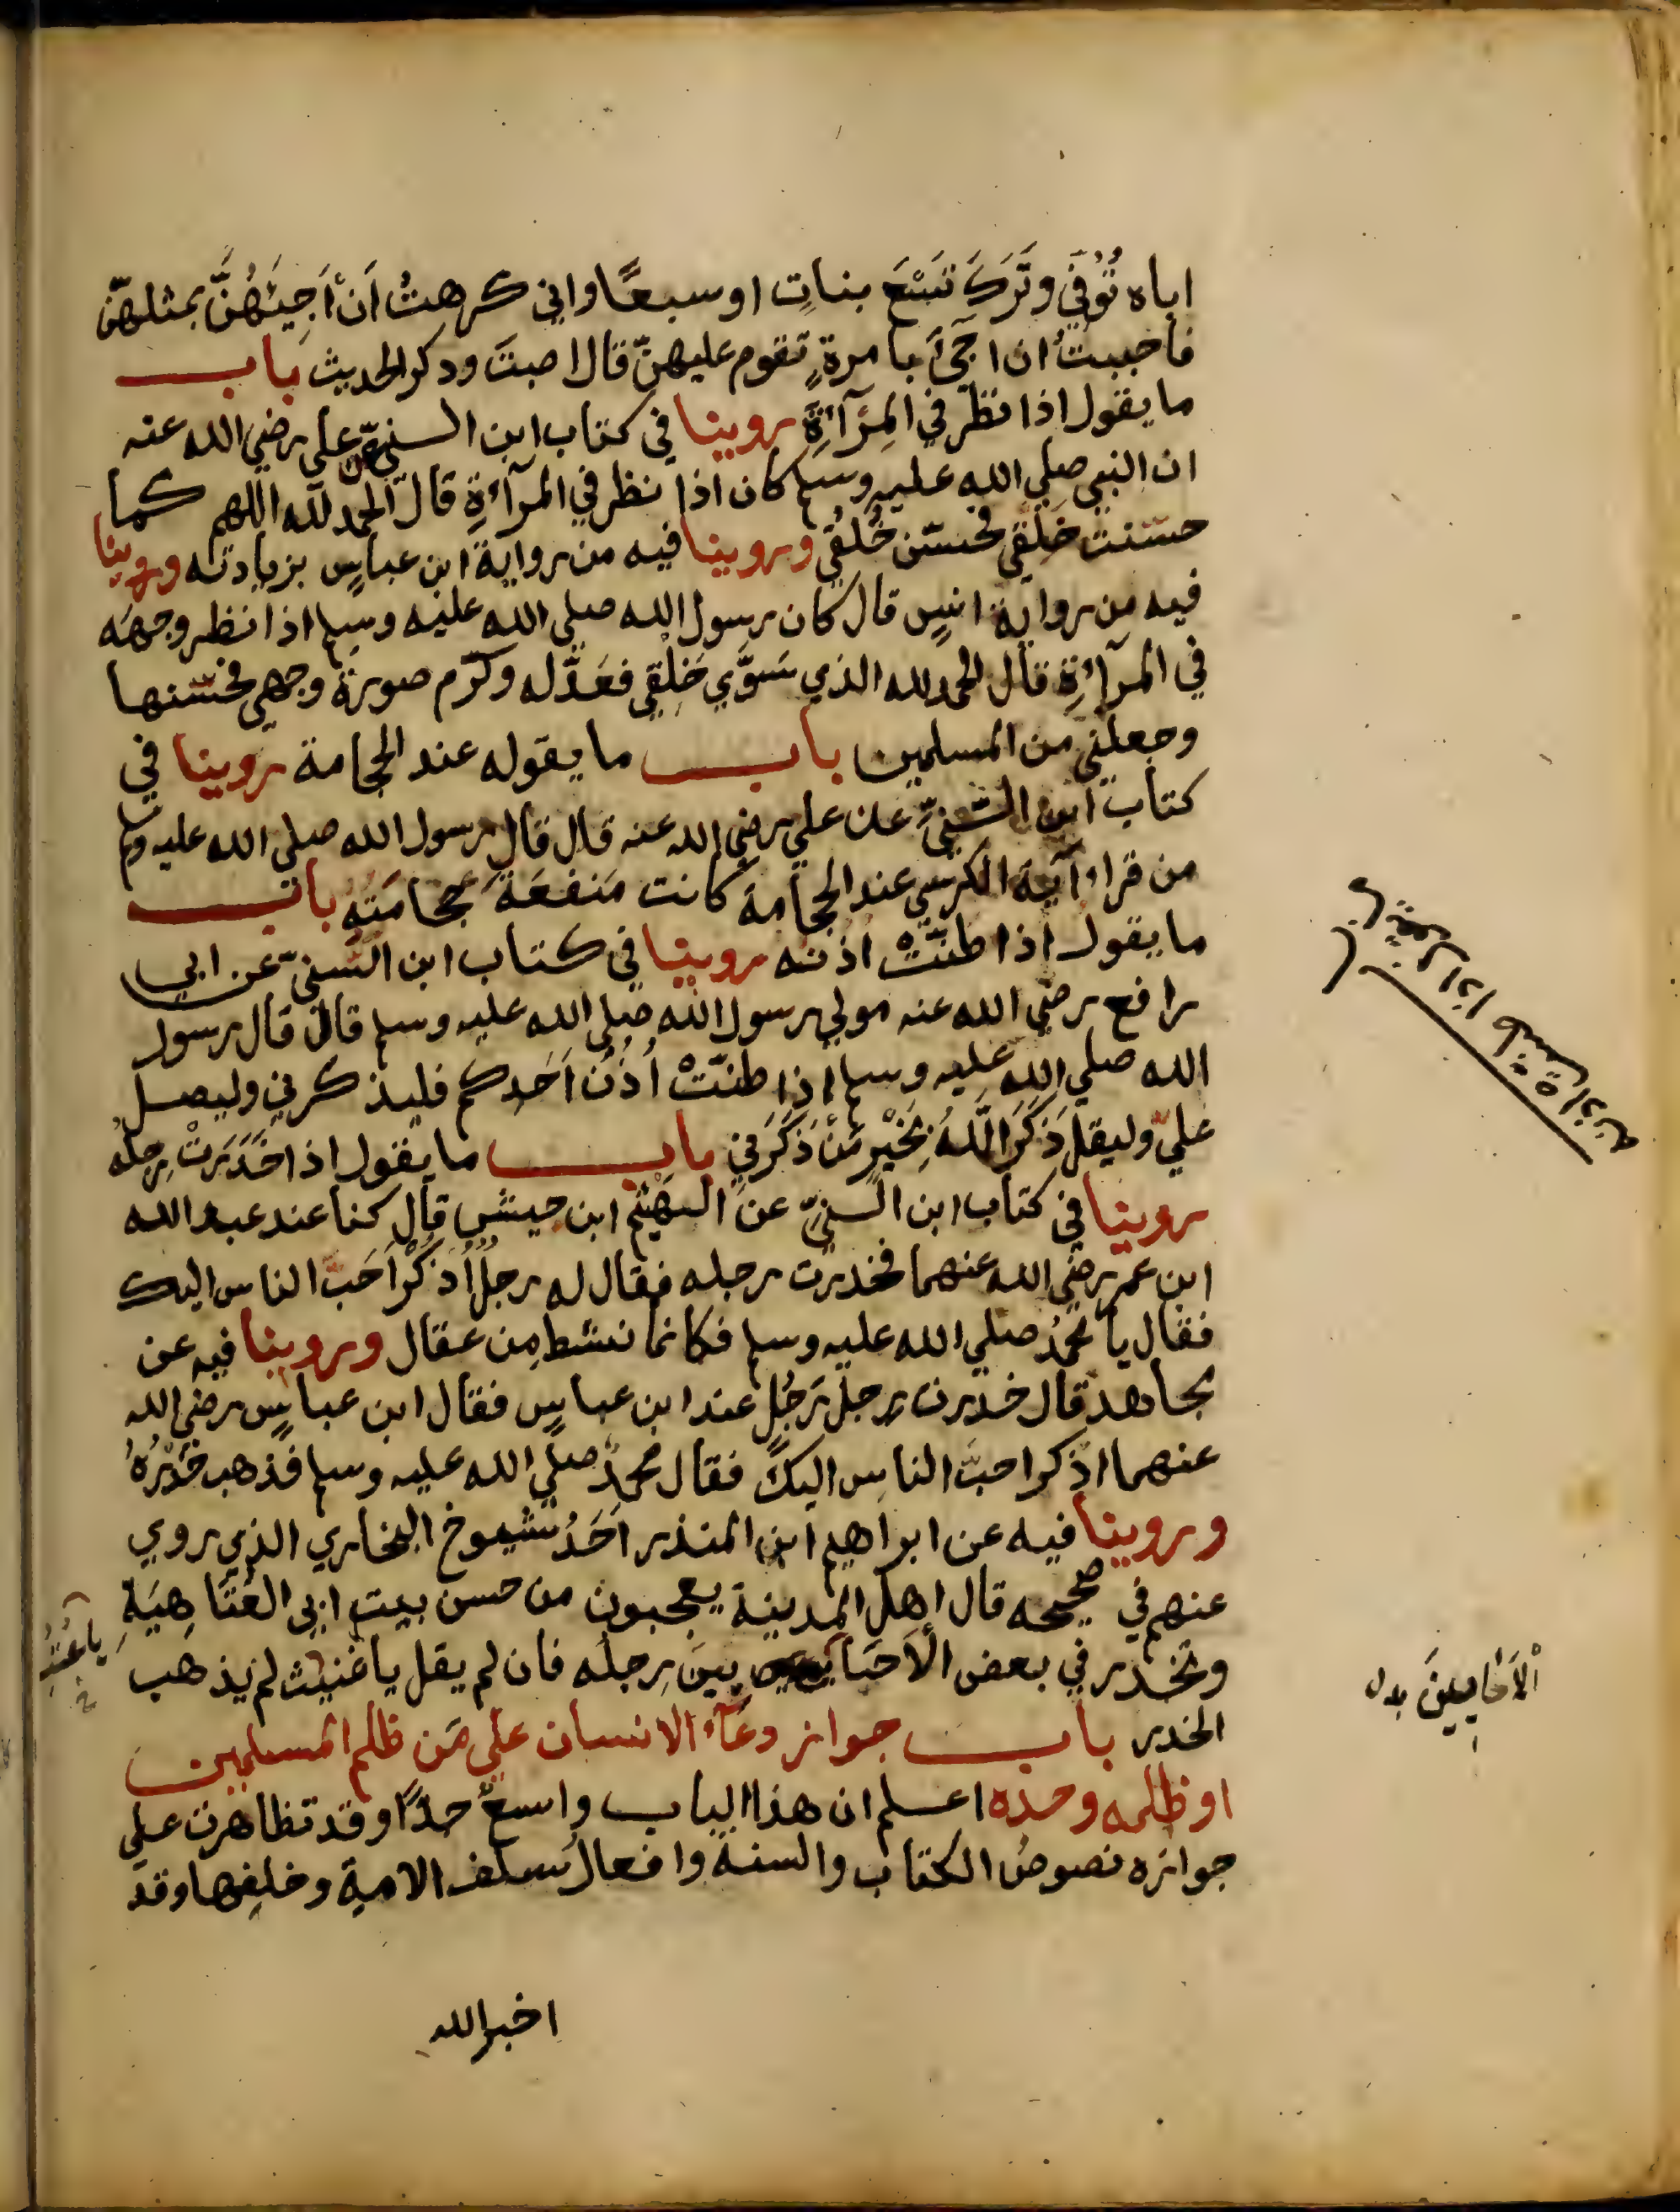 اباه تُوُفّي وتَرَكَ تِسْعَ بناتٍ او سبعًا واني كرهتُ اَنْ اَجِيَئهُنَّ بمثلهنّ
فاحببتُ ان اجيَ بامرةٍ تقوم عليهنّ قال اصبتَ وذكر الحديث باب
ما يقول اذا نظر في المِرْآءَةِ روينا في كتاب ابن السني عن علي رضي الله عنه
ان النبي صلي الله عليه وسلم كان اذا نظر في المرآءةِ قال الحمد لله اللهم كما
حسّنت خَلْقي فحسّن خُلُقي وروينا فيه من رواية ابن عباسٍ بزيادته وروينا
فيه من رواية انسٍ قال كان رسول الله صلي الله عليه وسلم اذا نظر وجهَه
في المرآءَةِ قال الحمد لله الذي سَوَّي خَلْقي فعَدّله وكرّم صورة وجهي فحسّنها
وجعلني من المسلمين باب ما يقوله عند الحجامة روينا في
كتاب ابن السُّنيِّ عن علي رضي الله عنه قال قال رسول الله صلي الله عليه وسلم
من قراء آية الكرسي عند الحجامة كانت مَنفعَةَ حجامَتِه باب
ما يقول اذا طنّتْ اذنه روينا في كتاب ابن السُّنيّ عن ابي
رافع رضي الله عنه مولي رسول الله صلي الله عليه وسلم قال قال رسول
الله صلي الله عليه وسلم اذا طنّتْ اُذُنُ اَحَدِكم فليذكرني وليصل
عليّ وليقل ذَكَرَ اللّهُ بِخَيْرٍ مَنْ ذَكَرَني باب ما يقول اذا خَدَرَتْ رِجلُه
روينا في كتاب ابن السنيِّ عن الهَيْثم ابن حنش قال كنا عند عبد الله
ابن عمر رضي الله عنهما فخدرت رجله فقال له رجلٌ اُذْكُرْ اَحَبَّ الناس اليك
فقال يا محمدُ صلي الله عليه وسلم فكانما نشط مِن عقال وروينا فيه عن
مجاهد قال خدرت رِجلُ رَجُلٍ عند ابن عباسٍ فقال ابن عباسٍ رضي الله
عنهما اذكر احبَّ الناسِ اليكَ فقال محمدٌ صلي الله عليه وسلم فذهب خَدَرُهُ
وروينا فيه عن ابراهيم ابن المنذر اَحَدُ شيوخ البخاري الذي روي
عنهم في صحيحه قال اهل المدينة يعجبون من حسن بيت ابي العَتَاهِيَةِ
وتخدر في بعض الاَحَايين رِجلُه فان لم يقل يا عتبُ لم يذهب
الخدر باب جواز دعآء الانسان علي مَن ظلم المسلمين
او ظلمه وحده اعلم ان هذا الباب واسعٌ جدًّا وقد تظاهرت علي
جوازه نصوصُ الكتاب والسنة وافعالُ سلف الامة وخلفِها وقد
اخبر الله
الاَحَايِينَ بدل